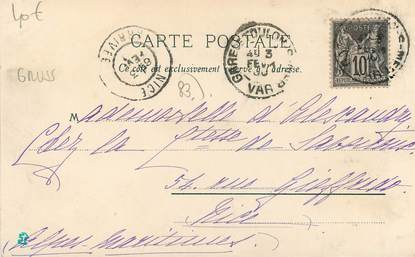 40€
CARTE POSTALE
Ce côté est exclusivement réservé à l'adresse.
GRUSS
83
NICE
ARRIVÉE
GARE DE TOULON
3
FEVR
VAR
POSTE
10
Mademoiselle d'Alescandry
Chez la
54, rue Gioffredo
Nice
Alpes-Maritimes